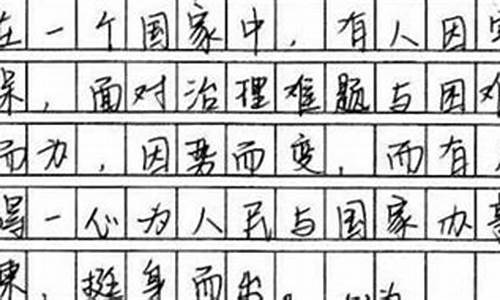 在一个国家中，有人因
，面对治理难题与困难
而为，因势而变，而有
得一心为人民与国家办
，挺身而出。